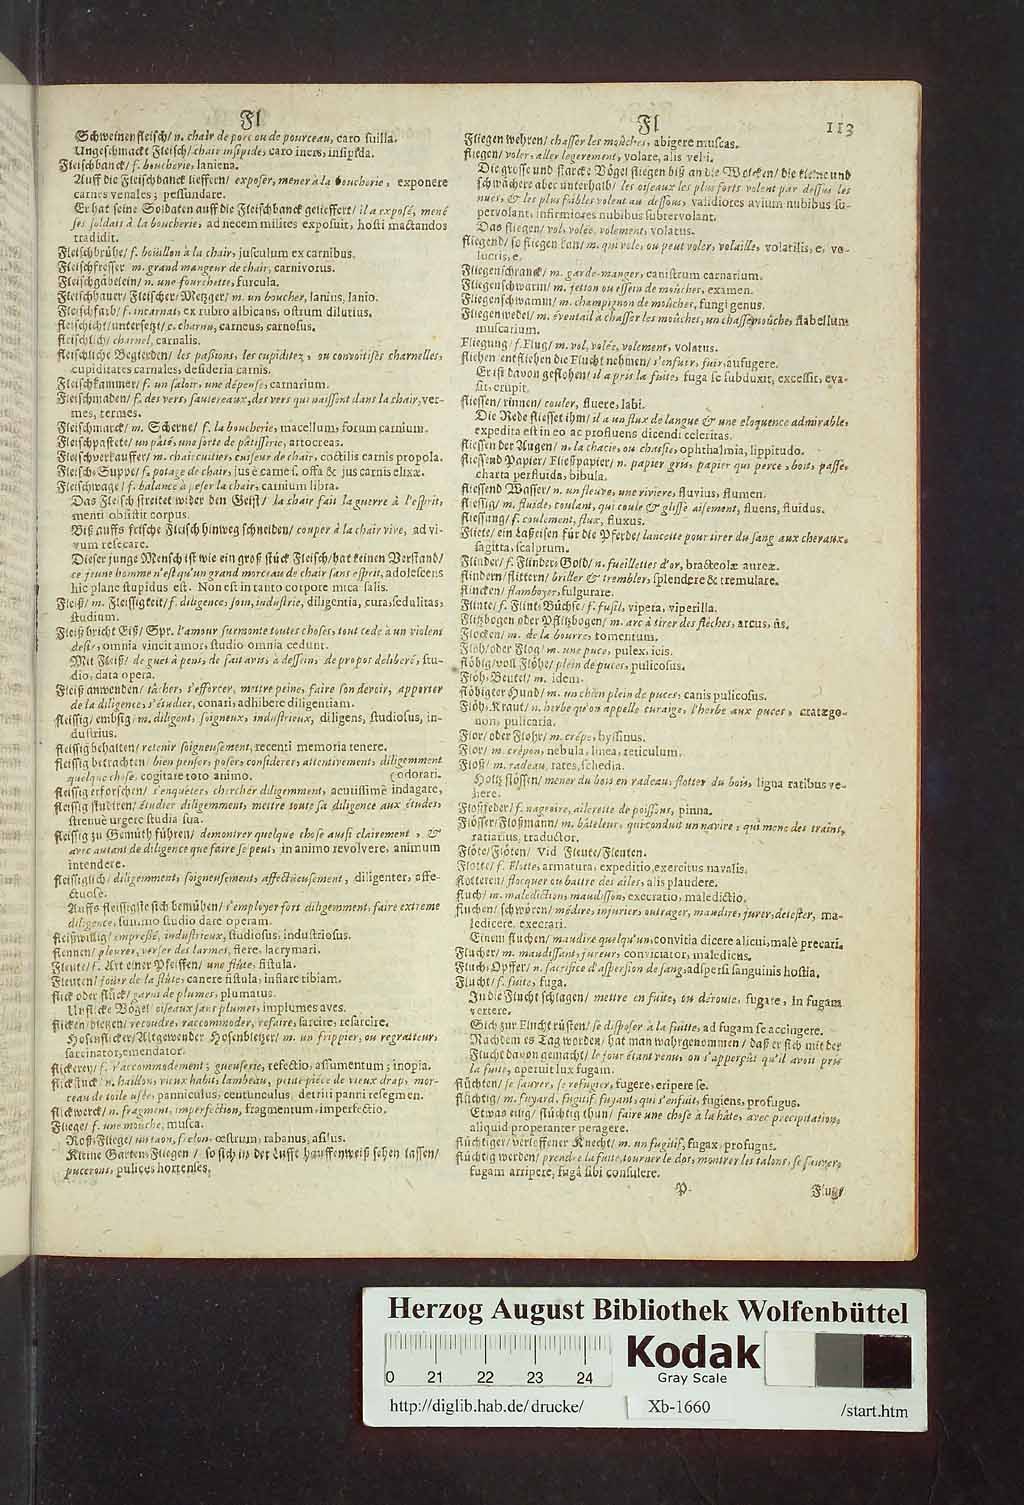 Fl
Schweinenfleisch/ n. chair de porc ou de pourceau, caro suilla.
Ungeschmackt Fleisch/ chair insipide, caro iners, insipida.
Fleischbanck/ f. boucherie, laniena.
Auff die Fleischbanck lieffern/ exposer, mener à la boucherie, exponere
carnes venales; pessundare.
Er hat seine Soldaten auff die Fleischbanck gelieffert/ il a exposé, mené
ses soldats à la boucherie, ad necem milites exposuit, hosti mactandos
tradidit.
Fleischbrühe/ f. boüillon à la chair, jusculum ex carnibus.
Fleischfresser m. grand mangeur de chair, carnivorus.
Fleischgäbelein/ n. une fourchette, furcula.
Fleischhauer/ Fleischer/ Metzger/ m. un boucher, lanius, lanio.
Fleischfarb/ f. incarnat, ex rubro albicans, ostrum dilutius.
fleischicht/ untersetzt/ c. charnu, carneus, carnosus.
fleischlich/ charnel, carnalis.
fleischliche Begierden/ les passions, les cupiditez, ou convoitises charnelles,
cupiditates carnales, desideria carnis.
Fleischkammer/ f. un saloir, une dépense, carnarium.
Fleischmaden/ f. des vers, sautereaux, des vers qui naissent dans la chair, ver-
mes, termes.
Fleischmarck/ m. Scherne/ f. la boucherie, macellum, forum carnium.
Fleischpastete/ un pâté, une sorte de pâtisserie, artocreas.
Fleischverkauffer/ m. chaircuitier, cuiseur de chair, coctilis carnis propola.
Fleisch-Suppe/ f. potage de chair, jus è carne f. offa & jus carnis elixæ.
Fleischwage/ f. balance à peser la chair, carnium libra.
Das Fleisch streitet wider den Geist/ la chair fait la guerre à l'esprit,
menti obsistit corpus.
Biß auffs frische Fleisch hinweg schneiden/ couper à la chair vive, ad vi-
vum resecare.
Dieser junge Mensch ist wie ein groß stück Fleisch/ hat keinen Verstand/
ce jeune homme n'est qu'un grand morceau de chair sans esprit, adolescens
hic plane stupidus est. Non est in tanto corpore mica salis.
Fleiß/ m. Fleissigkeit/ f. diligence, soin, industrie, diligentia, cura, sedulitas,
studium.
Fleiß bricht Eiß/ Spr. l'amour surmonte toutes choses, tout cede à un violent
desir, omnia vincit amor, studio omnia cedunt.
Mit Fleiß/ de guet à pens, de fait avis, à dessein, de propos deliberé, stu-
dio, data opera.
Fleiß anwenden/ tâcher, s'efforcer, mettre peine, faire son devoir, apporter
de la diligence, s'étudier, conari, adhibere diligentiam.
fleissig/ embsig/ m. diligent, soigneux, industrieux, diligens, studiosus, in-
dustrius.
fleissig behalten/ retenir soigneusement, recenti memoria tenere.
fleissig betrachten/ bien penser, poser, considerer, attentivement, diligemment
quelque chose, cogitare toto animo. [odorari.
fleissig erforschen/ s'enquêter, chercher diligemment, acutissimè indagare,
fleissig studiren/ étudier diligemment, mettre toute sa diligence aux études,
strenuè urgere studia sua.
fleissig zu Gemüth führen/ demontrer quelque chose aussi clairement, &
avec autant de diligence que faire se peut, in animo revolvere, animum
intendere.
fleissiglich/ diligemment, soigneusement, affectueusement, diligenter, affe-
ctuose.
Auffs fleissigste sich bemühen/ s'employer fort diligemment, faire extreme
diligence, summo studio dare operam.
fleißwillig/ empressé, industrieux, studiosus, industriosus.
flennen/ pleurer, verser des larmes, flere, lacrymari.
Fleute/ f. Art einer Pfeiffen/ une flûte, fistula.
Fleuten/ joüer de la flûte, canere fistula, inflare tibiam.
flick oder flück/ garni de plumes, plumatus.
Unflicke Vögel oiseaux sans plumes, implumes aves.
flicken/ bletzen/ recoudre, raccommoder, refaire, sarcire, resarcire.
Hosenflicker/ Altgewender Hosenbletzer/ m. un frippier, ou regratteur,
sarcinator, emendator.
flickerey/ f. r'accommodement; gueuserie, refectio, assumentum; inopia.
flickstück/ n. haillon, vieux habit, lambeau, petite piéce de vieux drap, mor-
ceau de toile usée, panniculus, centunculus, detriti panni resegmen.
flickwerck/ n. fragment, imperfection, fragmentum, imperfectio.
Fliege/ f. une mouche, musca.
Roß-Fliege/ un taon, frelon, œstrum, tabanus, asilus.
Kleine Garten-Fliegen / so sich in der Lufft hauffenweiß sehen lassen/
pucerons, pulices hortenses.
Fl 113
Fliegen wehren/ chasser les moûches, abigere muscas.
fliegen/ voler, aller legerement, volare, alis vehi.
Die grosse und starcke Vögel fliegen biß an die Wolcken/ die kleine und
schwächere aber unterhalb/ les oiseaux les plus forts volent par dessus les
nuës, & les plus faibles volent au dessous, validiores avium nubibus su-
pervolant, infirmiores nubibus subtervolant.
Das fliegen/ vol, volée, volement, volatus.
fliegend/ so fliegen kan/ m. qui vole, ou peut voler, volaille, volatilis, e, vo-
lucris, e.
Fliegenschranck/ m. garde-manger, canistrum carnarium.
Fliegenschwarm/ m. jetton ou essein de moûches, examen.
Fliegenschwamm/ m. champignon de moûches, fungi genus.
Fliegenwedel/ m. éventail à chasser les moûches, un chassemoûche, flabellum
muscarium.
Fliegung/ f. Flug/ m. vol, volée, volement, volatus.
fliehen/ entfliehen die Flucht nehmen/ s'enfuir, fuir, aufugere.
Er ist davon geflohen/ il a pris la fuite, fuga se subduxit, excessit, eva-
sit, erupit.
fliessen/ rinnen/ couler, fluere, labi.
Die Rede fliesset ihm/ il a un flux de langue & une eloquence admirable,
expedita est in eo ac profluens dicendi celeritas.
fliessen der Augen/ n. la chacie, ou chassie, ophthalmia, lippitudo.
fliessend Papier/ Fließpapier/ n. papier gris, papier qui perce, boit, passe,
charta perfluida, bibula.
fliessend Wasser/ n. un fleuve, une riviere, fluvius, flumen.
fliessig/ m. fluide, coulant, qui coule & glisse aisement, fluens, fluidus.
fliessung/ f. coulement, flux, fluxus.
Fliete/ ein Laßeisen für die Pferde/ lancette pour tirer du sang aux chevaux,
sagitta, scalprum.
Flinder/ f. Flinder-Gold/ n. fueillettes d'or, bracteolæ aureæ.
flindern/ flittern/ briller & trembler, splendere & tremulare.
flincken/ flamboyer, fulgurare.
Flinte/ f. Flint-Büchse/ f. fusil, vipera, viperilla.
Flitzbogen oder Pflitzbogen/ m. arc à tirer des flêches, arcus, ûs.
Flocken/ m. de la bourre, tomentum.
Flöh/ oder Flog/ m. une puce, pulex, icis.
flöhig/ voll Flöhe/ plein de puces, pulicosus.
Flöh-Beutel/ m. idem.
flöhigter Hund/ m. un chien plein de puces, canis pulicosus.
Flöh-Kraut/ n. herbe qu'on appelle curaige, l'herbe aux puces, cratægo-
non, pulicaria.
Flor/ oder Flohr/ m. crêpe, byssinus.
Flor/ m. crêpon, nebula, linea, reticulum.
Floß/ m. radeau, rates, schedia.
Holtz flössen/ mener du bois en radeau, flotter du bois, ligna ratibus ve-
here.
Floßfeder/ f. nageoire, ailerette de poissons, pinna.
Flösser/ Floßmann/ m. bâteleur, qui conduit un navire, qui mene des trains,
ratiarius, traductor.
Flöte/ Flöten/ Vid Fleute/ Fleuten.
Flotte/ f. Flotte, armatura, expeditio, exercitus navalis.
flotteren/ flocquer ou battre des ailes, alis plaudere.
fluch/ m. malediction, maudisson, execratio, maledictio.
fluchen/ schwören/ médire, injurier, outrager, maudire, jurer, detester, ma-
ledicere, execrari.
Einem fluchen/ maudire quelqu'un, convitia dicere alicui, malè precari.
Flucher/ m. maudissant, jureur, conviciator, maledicus.
Fluch-Opffer/ n. sacrifice d'aspersion de sang, adspersi sanguinis hostia.
Flucht/ f. fuite, fuga.
In die Flucht schlagen/ mettre en fuite, ou déroute, fugare, in fugam
vertere.
Sich zur Flucht rüsten/ se disposer à la fuite, ad fugam se accingere.
Nachdem es Tag worden/ hat man wahrgenommen/ daß er sich mit der
Flucht davon gemacht/ le jour étant venu, on s'apperçût qu'il avoit pris
la fuite, aperuit lux fugam.
flüchten/ se sauver, se refugier, fugere, eripere se.
flüchtig/ m. fuyard, fugitif, fuyant, qui s'enfuit, fugiens, profugus.
Etwas eilig/ flüchtig thun/ faire une chose à la hâte, avec precipitation,
aliquid properanter peragere.
flüchtiger/ verloffener Knecht/ m. un fugitif, fugax, profugus.
flüchtig werden/ prendre la fuite, tourner le dos, montrer les talons, se sauver,
fugam arripere, fugâ sibi consulere.
P Flug/
Herzog August Bibliothek Wolfenbüttel
0 21 22 23 24
Kodak
Gray Scale
http://diglib.hab.de/drucke/ Xb-1660 /start.htm